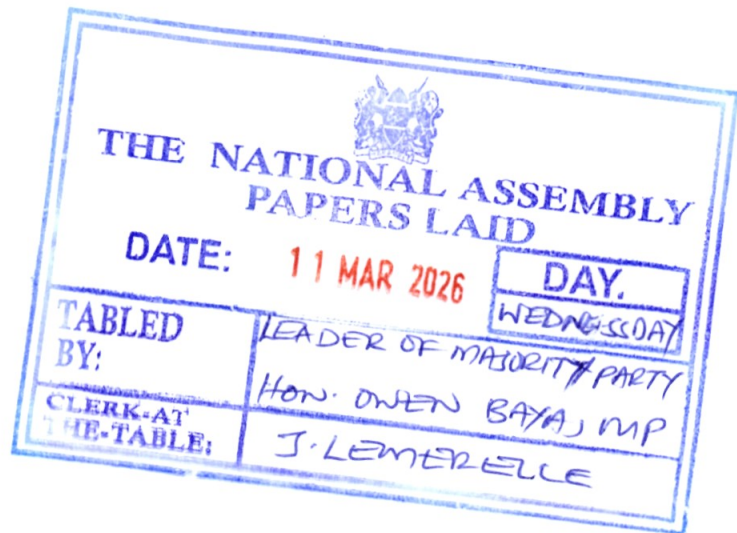 THE NATIONAL ASSEMBLY
PAPERS LAID
DATE: 11 MAR 2026
DAY.
WEDNESSDAY
TABLED BY:
LEADER OF MAJORITY PARTY
HON. OWEN BAYA, MP
CLERK-AT THE-TABLE:
J. LEMERELLE